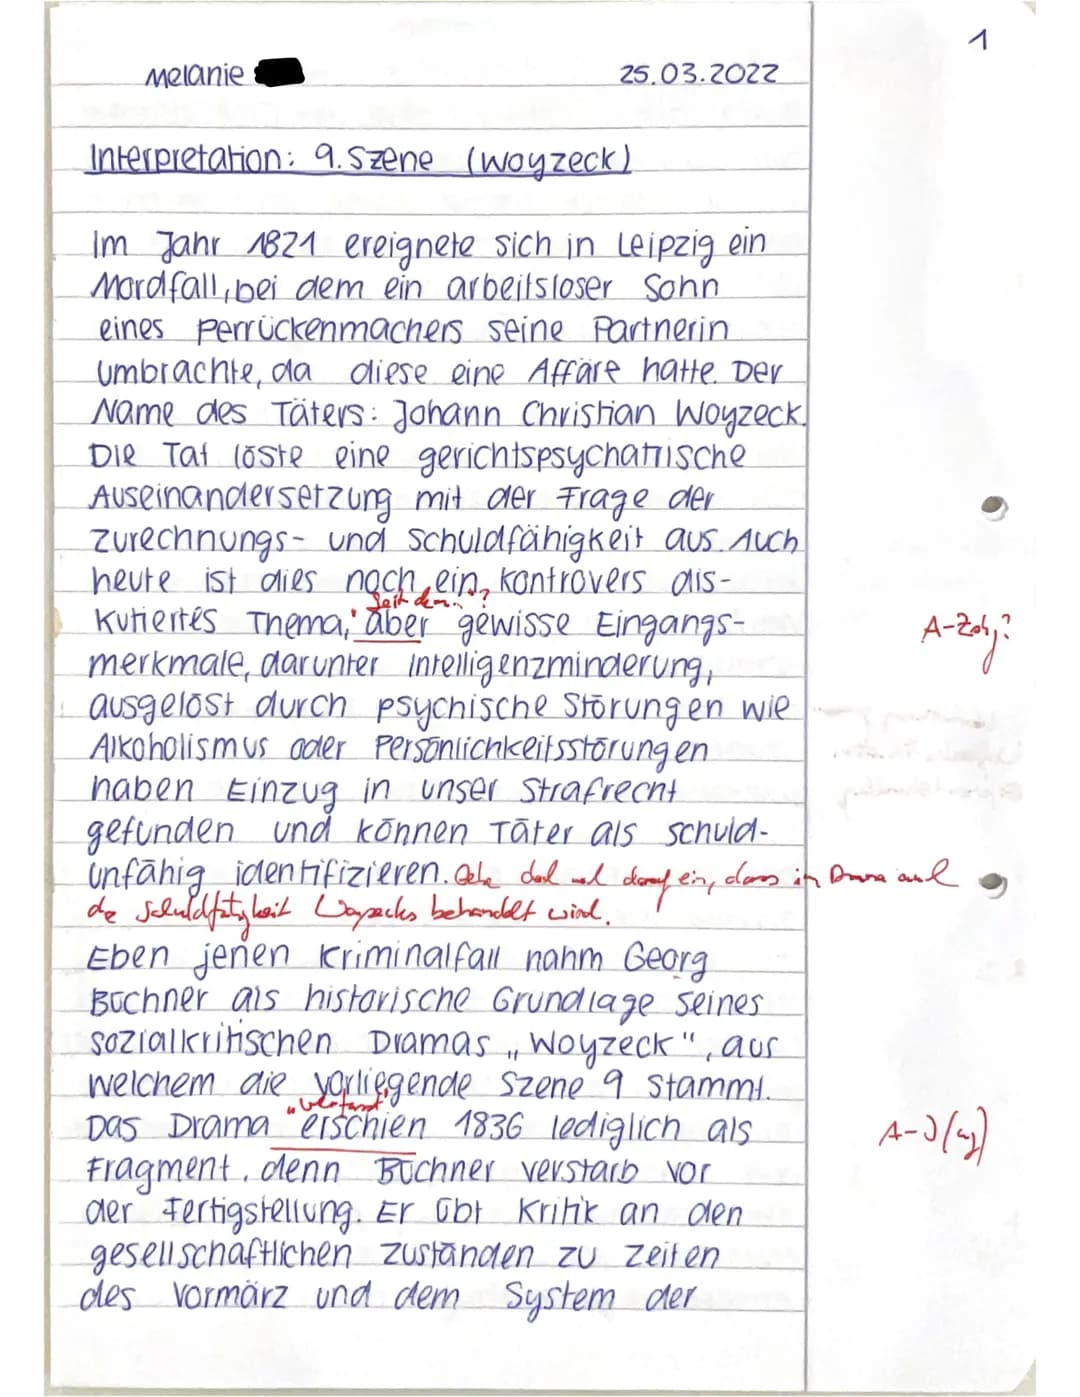 1
Melanie
25.03.2022
Interpretation: 9. Szene (Woyzeck)
Im Jahr 1821 ereignete sich in Leipzig ein
Mordfall, bei dem ein arbeitsloser Sohn
eines Perrückenmachers seine Partnerin
umbrachte, da diese eine Affäre hatte. Der
Name des Täters: Johann Christian Woyzeck.
Die Tat löste eine gerichtspsychatrische
Auseinandersetzung mit der Frage der
Zurechnungs- und Schuldfähigkeit aus. Auch
heute ist dies noch ein kontrovers dis-
"Seit dem..."?
kutiertes Thema, aber gewisse Eingangs-
A-Zshg?
merkmale, darunter Intelligenzminderung,
ausgelöst durch psychische Störungen wie
Alkoholismus oder Persönlichkeitsstörungen
haben Einzug in unser Strafrecht
gefunden und können Täter als schuld-
unfähig identifizieren. Gehe doch mal darauf ein, dass im Drama auch
die Schuldfähigkeit Woyzecks behandelt wird.
Eben jenen Kriminalfall nahm Georg
Büchner als historische Grundlage seines
sozialkritischen Dramas „Woyzeck", aus
welchem die vorliegende Szene 9 stammt.
"verfasst"
Das Drama erschien 1836 lediglich als
Fragment, denn Büchner verstarb vor
der Fertigstellung. Er übt Kritik an den
gesellschaftlichen Zuständen zu Zeiten
des Vormärz und dem System der